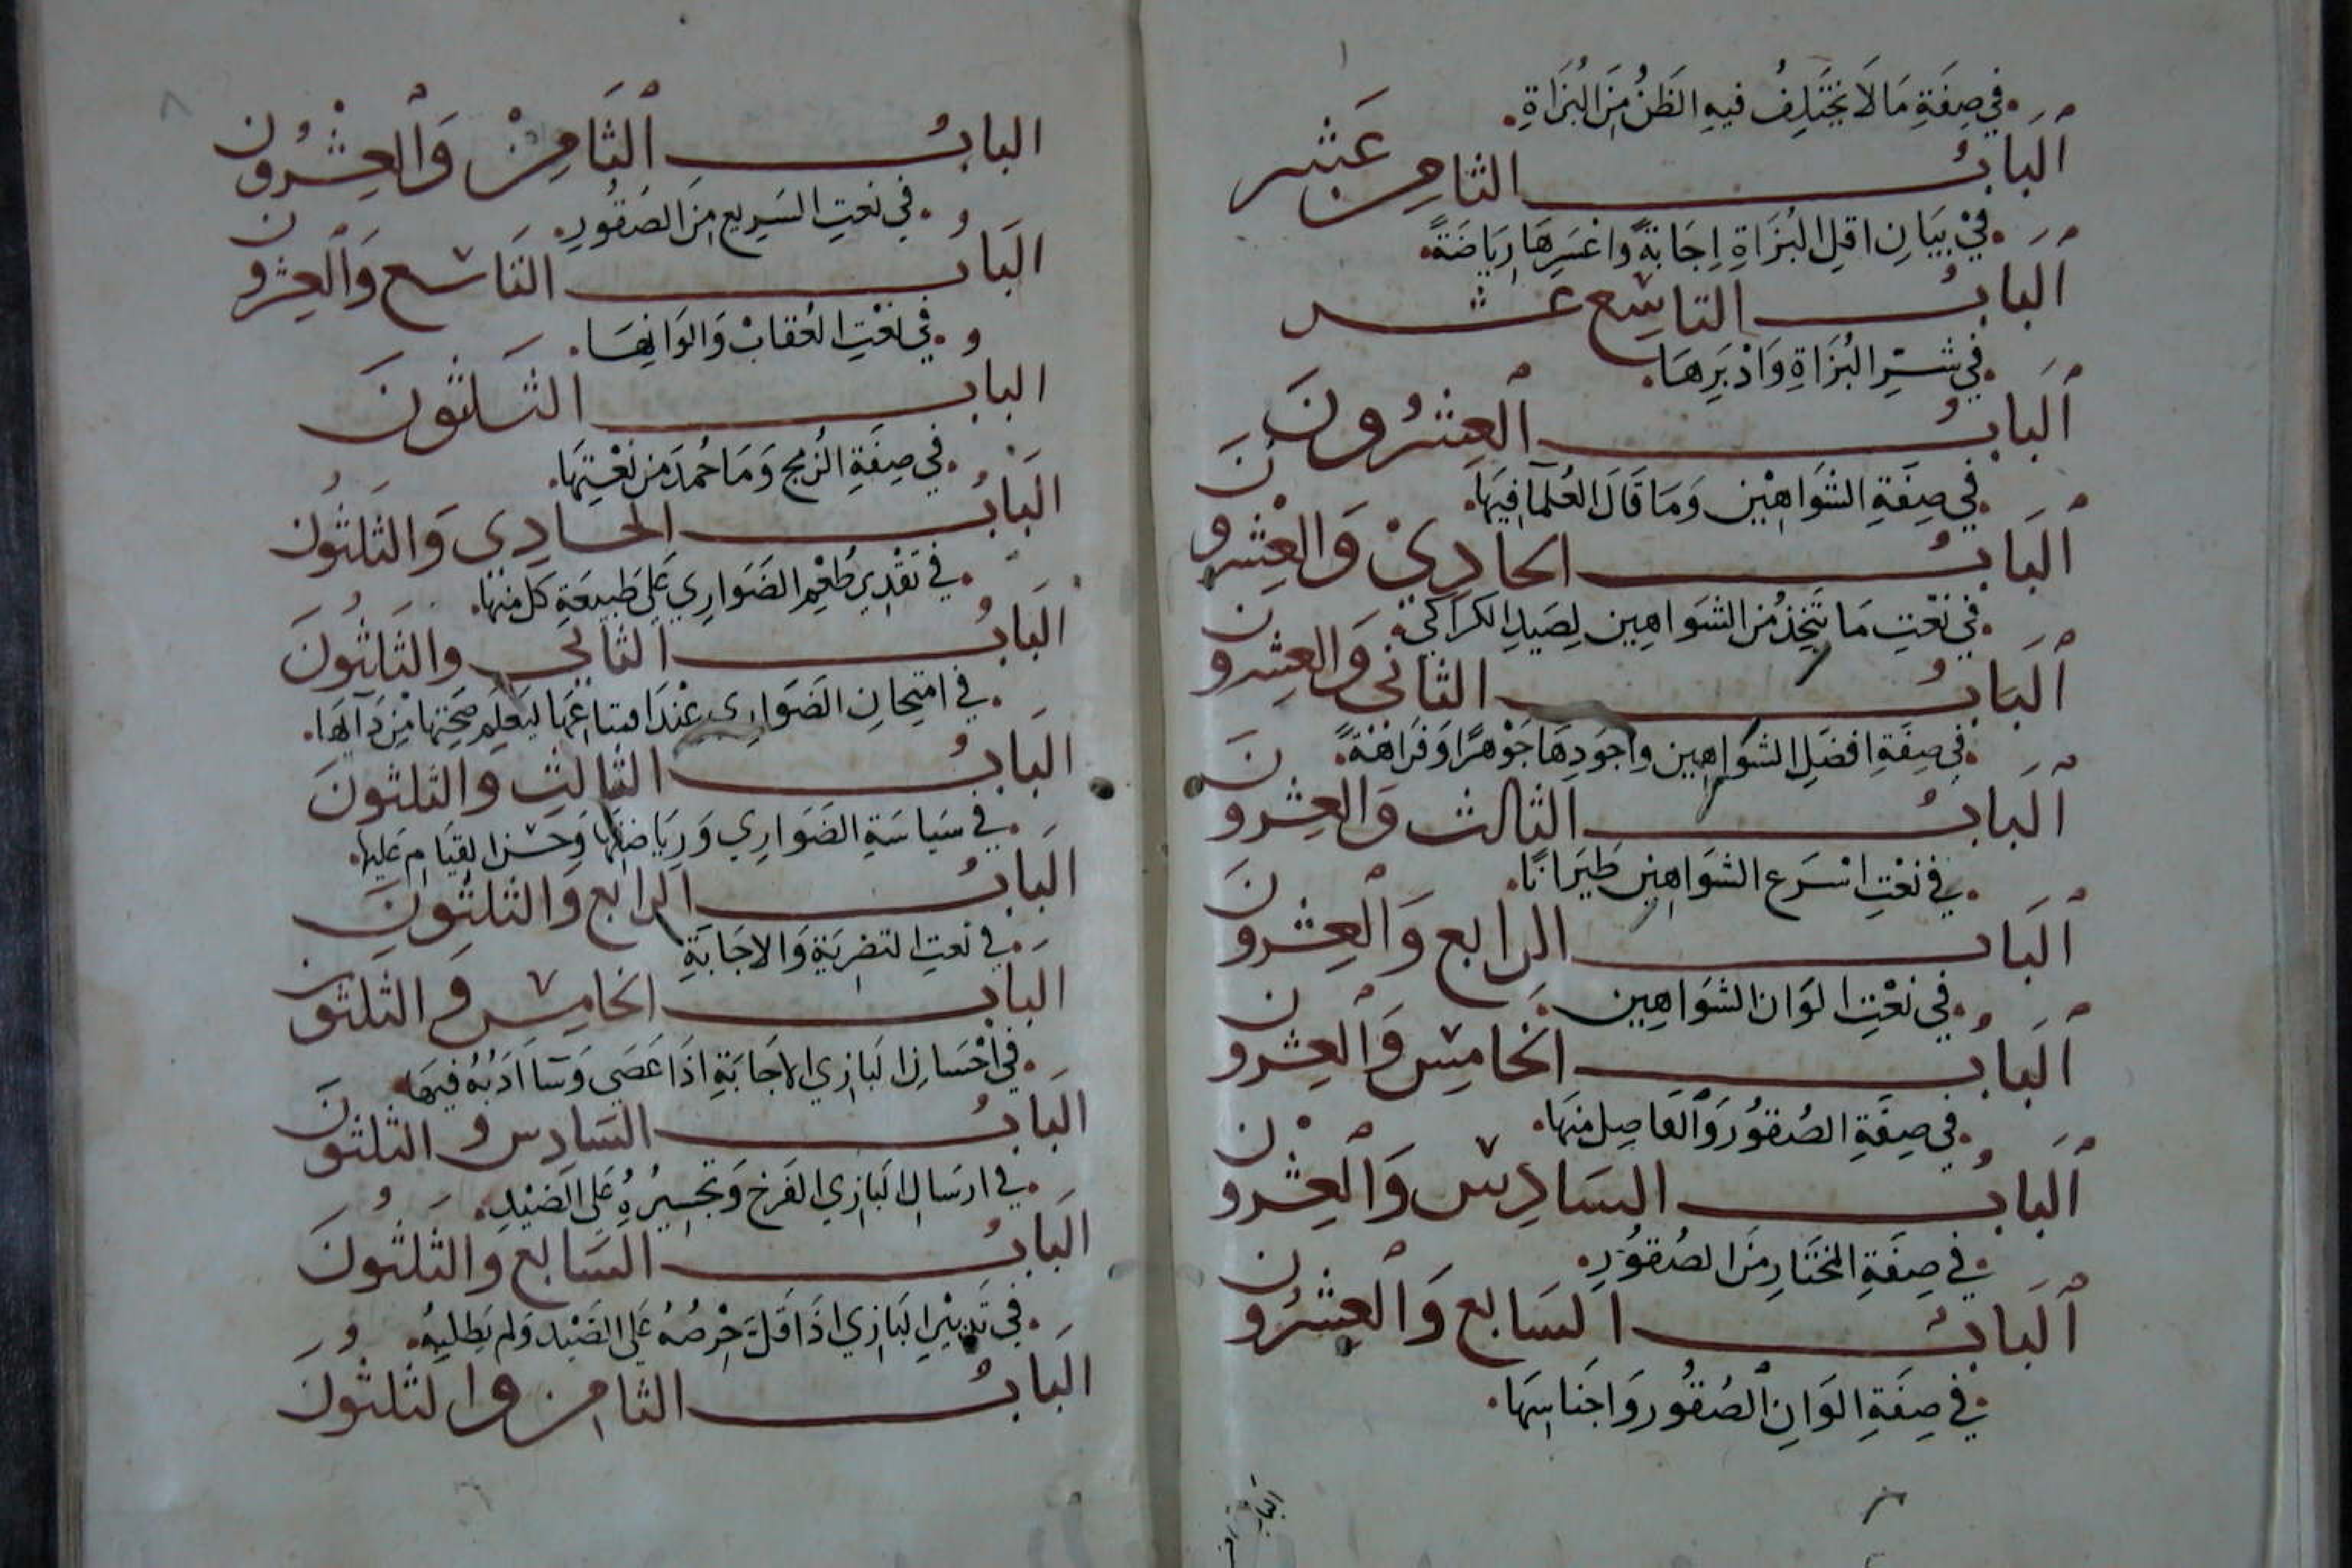 في صِفَةِ مَا لَا يَخْتَلِفُ فيهِ الظَنُ مِنَ البُزَاةِ
اَلبَابُ الثامِن عَشر
فيْ بَيَانِ اقلِ البُزَاةِ اِجَابةً وَاعْسَرِهَا رِيَاضَةً
اَلبَابُ التاسِع عشر
في شَرِّ البُزَاةِ وَادْبَرِهَا
اَلبَابُ العِشرُونَ
في صِفَةِ الشَوَاهِيْن وَمَا قَالَ العُلمآ فِيهَا
اَلبَابُ الحَادِيْ وَالعِشرونَ
في نَعْتِ مَا يتَّخِذُ مِن الشَوَاهِين لِصَيدِ الكراكي
اَلبَابُ الثاني وَالعِشرون
في صِفَةِ افضَلِ الشوَاهِين وَاجوَدِهَا جَوْهرًا وَفَرَاهَةً
اَلبَابُ الثالث وَالعِشرونَ
في نعْتِ اسْرَع الشَوَاهِين طيَرَانًا
اَلبَاب الرابع وَالعِشرونَ
في نعْتِ الوَان الشوَاهِين
اَلبَابُ الخامِس وَالعِشرون
في صِفَةِ الصُقوُر وَالفاصِل مِنهَا
اَلبَابُ السَادِس وَالعِشرون
في صِفَةِ المختَارِ مِنَ الصُقوُرِ
اَلبَابُ السَابع وَالعِشرُون
في صِفَةِ الوَانِ الصُقوُر وَاجنَاسِهَا
البابُ الثَامِنْ وَالعِشْرُون
في نَعتِ السَرِيع مِنَ الصَقُورِ
البَابُ التَاسع وَالعِشرون
في نَعْتِ العُقابْ وَالوَانِهَا
الباب الثَلثونَ
في صِفَةِ الزمج وَمَا حُمدَ مِن نَعْتِهَا
البَابُ الحَادِي وَالثَلثُونَ
في تقْدِير طُعْمِ الضَوَارِي عَلى طَبيعَةِ كل منها
البَابُ الثاني وَالثَلثُونَ
في امتِحانِ الضَوَارِي عنْدَ ابتياعهَا ليَعلمِ صَحِتهَا مِنْ دَآئهَا
البَابُ الثالِثِ وَالثلثونَ
في سَيَاسَةِ الضَوَارِي وَرِيَاضتهَا وَحسْن القِيَامِ عَليها
البَابُ الرابع وَالثلثونَ
في نعتِ التضرِيَةِ وَالاجَابَةِ
البَاب الخامِس وَالثلثون
في احْسَانِ البَازِي الاجَابَةِ اذَا عَصَى وَسَآ ادَبُهُ فيهَا
البَابُ السَادِس وَالثلثونَ
في ارسَالِ البَازِي الفَرخ وَتجسِيرُهُ عَلى الصَيْدِ
البَابُ السَابع وَالثَلثُونَ
في تَدبيْرِ البَازِي اذَا قَلَّ حِرْصُهُ عَلى الصَيْد وَلم يَطلبهُ
البَابُ الثامِن وَالثلثُونَ